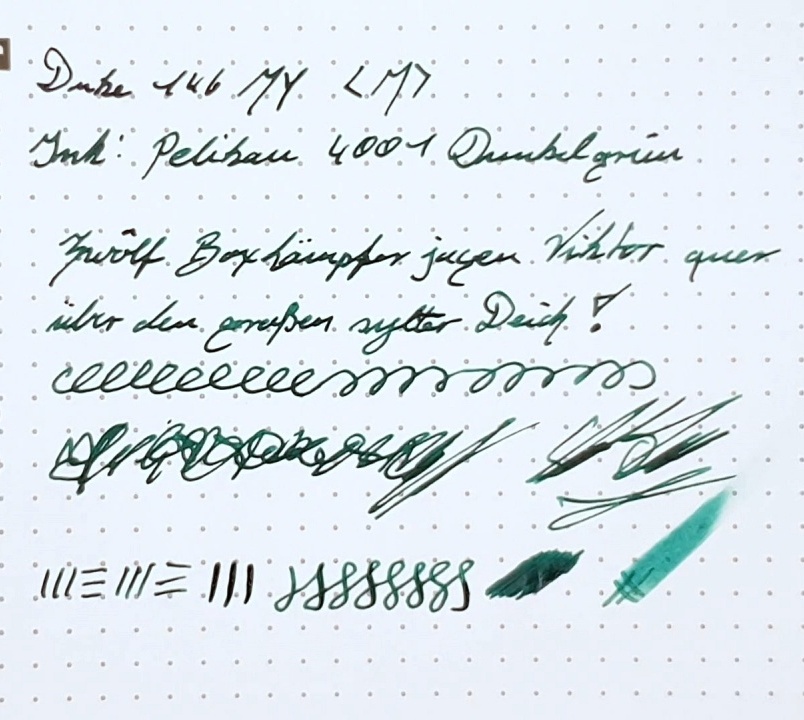 Duke 146 MY <M>
Ink: Pelikan 4001 Dunkelgrün
Zwölf Boxkämpfer jagen Viktor quer
über den großen sylter Deich!